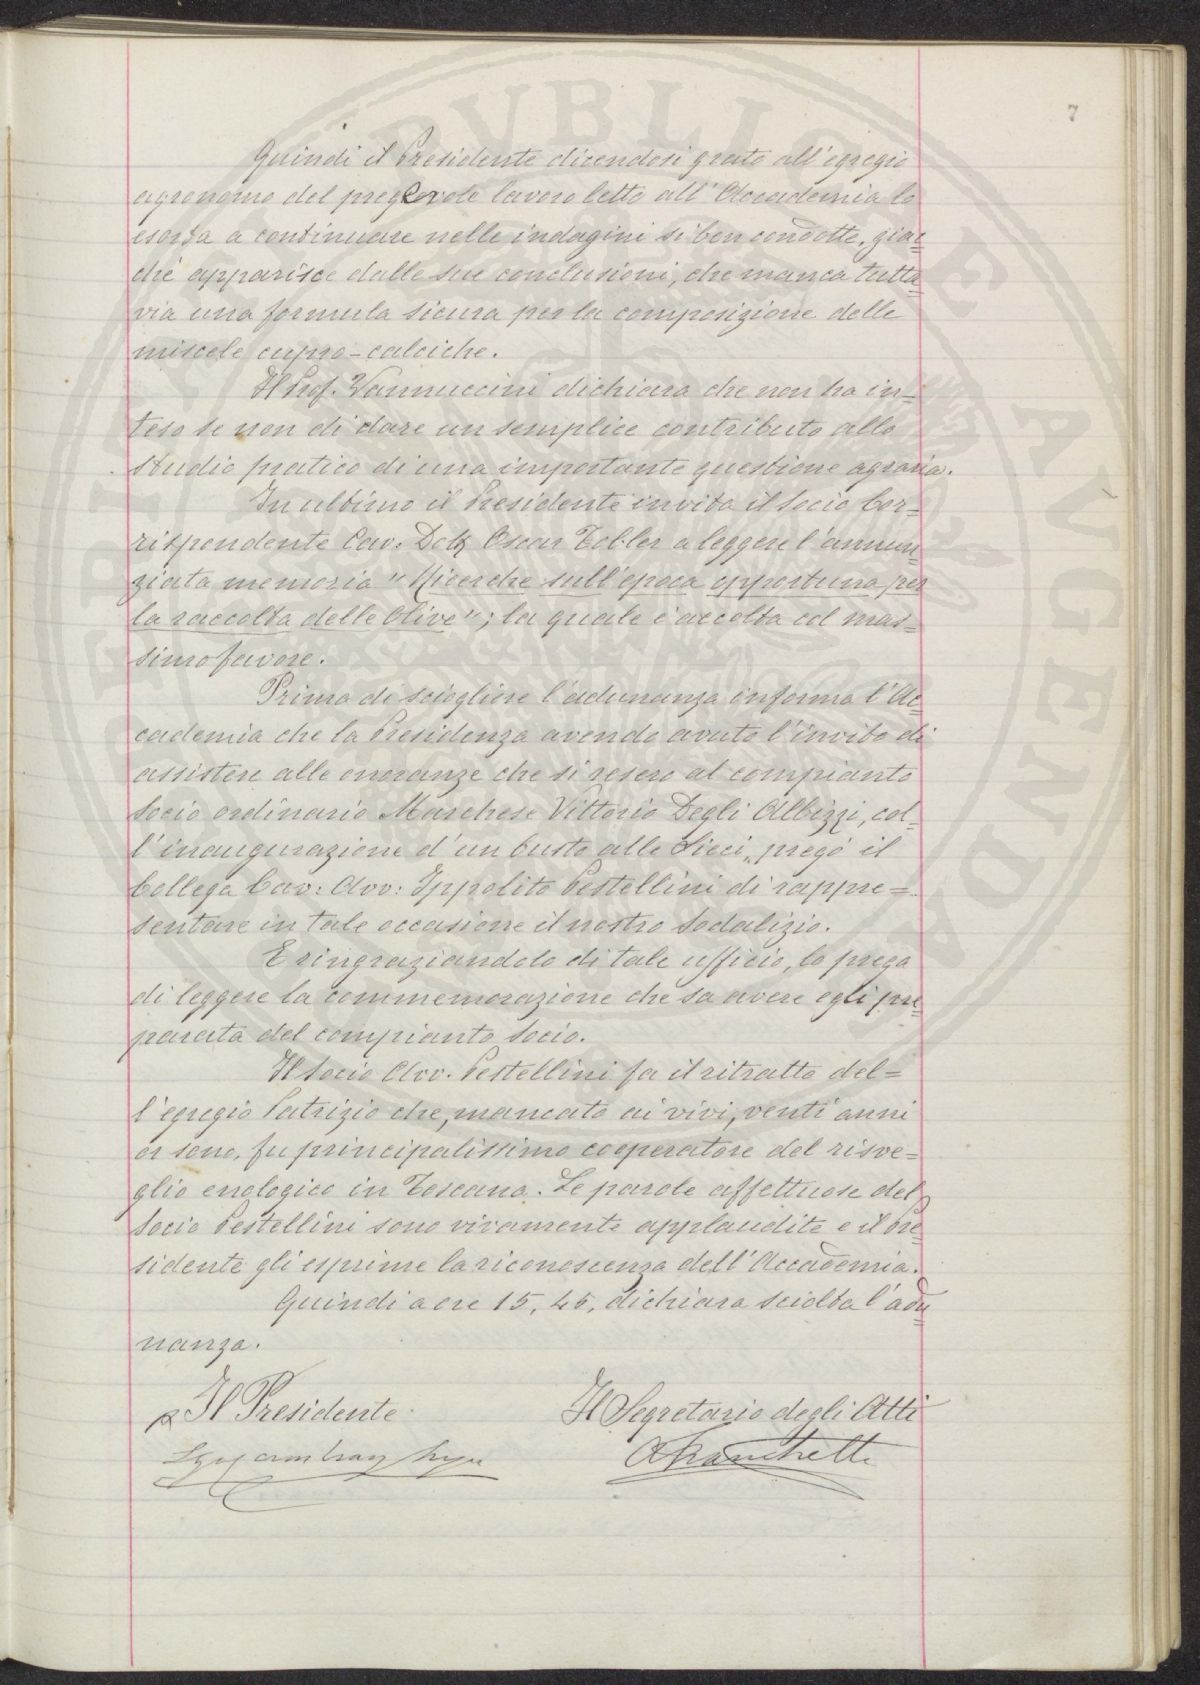 7
Quindi il Presidente dicendosi grato all'egregio
agronomo del pregevole lavoro letto all'Accademia lo
esorta a continuare nelle indagini sì ben condotte, giac=
chè apparisce dalle sue conclusioni, che manca tutta=
via una formula sicura per la composizione delle
miscele cupro-calciche.
Il Prof. Vannuccini dichiara che non ha in=
teso se non di dare un semplice contributo allo
studio pratico di una importante questione agraria.
In ultimo il Presidente invita il Socio Cor=
rispondente Cav. Dott. Oscar Tobler a leggere l'annun=
ziata memoria "Ricerche sull'epoca opportuna per
la raccolta delle Olive"; la quale è accolta col mas=
simo favore.
Prima di sciogliere l'adunanza informa l'Ac=
cademia che la Presidenza avendo avuto l'invito di
assistere alle onoranze che si resero al compianto
Socio ordinario Marchese Vittorio Degli Albizzi, col=
l'inaugurazione d'un busto alle Sieci, pregò il
Collega Cav: Avv: Ippolito Pestellini di rappre=
sentare in tale occasione il nostro Sodalizio.
E ringraziandolo di tale ufficio, lo prega
di leggere la commemorazione che sa avere egli pre=
parata del compianto Socio.
Il Socio Avv. Pestellini fa il ritratto del=
l'egregio Patrizio che, mancato ai vivi, venti anni
or sono, fu principalissimo cooperatore del risve=
glio enologico in Toscana. Le parole affettuose del
Socio Pestellini sono vivamente applaudite e il Pre=
sidente gli esprime la riconoscenza dell'Accademia.
Quindi a ore 15,45, dichiara sciolta l'adu=
nanza.
Il Presidente
Il Segretario degli Atti
PVBLICAE
AVGENDA